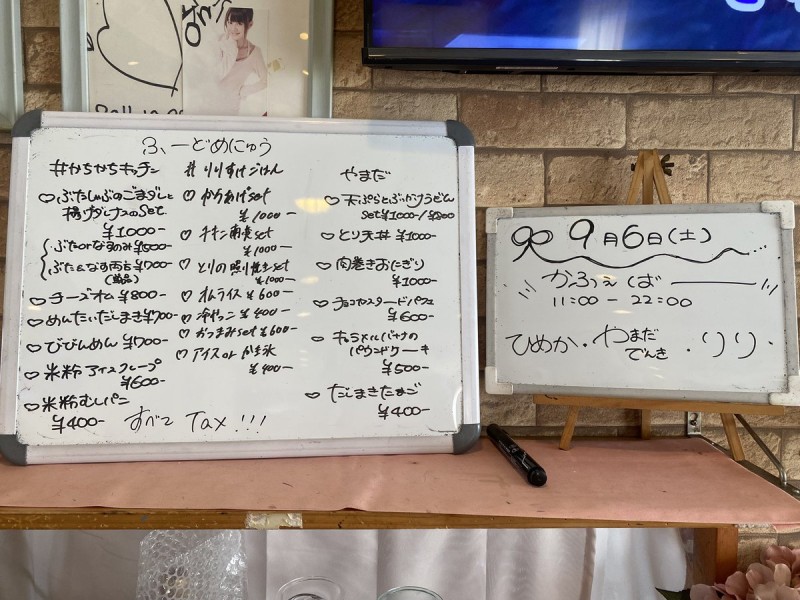 ふーどめにゅう
#かちかちキッチン
♡ぶたしゃぶのごまダレと
揚げダしナスのset
¥1000ー
ぶたorなすのみ¥500ー
ぶた&なす両方¥700ー
(単品)
♡チーズオム¥800ー
♡めんたいだしまき¥700ー
♡びびんめん¥700ー
♡米粉アイスクレープ
¥600ー
♡米粉むしパン
¥400ー
#りりすけごはん
♡からあげset
¥1000ー
♡チキン南蛮set
¥1000ー
♡とりの照り焼きset
¥1000ー
♡オムライス¥600ー
♡冷やっこ¥400ー
♡おつまみset¥600ー
♡アイスorかき氷
¥400ー
やまだ
♡天ぷらとぶっかけうどん
set¥1000ー/¥800
♡とり天丼¥1000ー
♡肉巻きおにぎり
¥1000ー
♡チョコカスタードパフェ
¥600ー
♡キャラメルバナナの
パウンドケーキ
¥500ー
♡だしまきたまご
¥400ー
すべて Tax!!!
9月6日(土)
かふぇくばー
11:00ー22:00
ひめか・やまだ
でんき・りり・